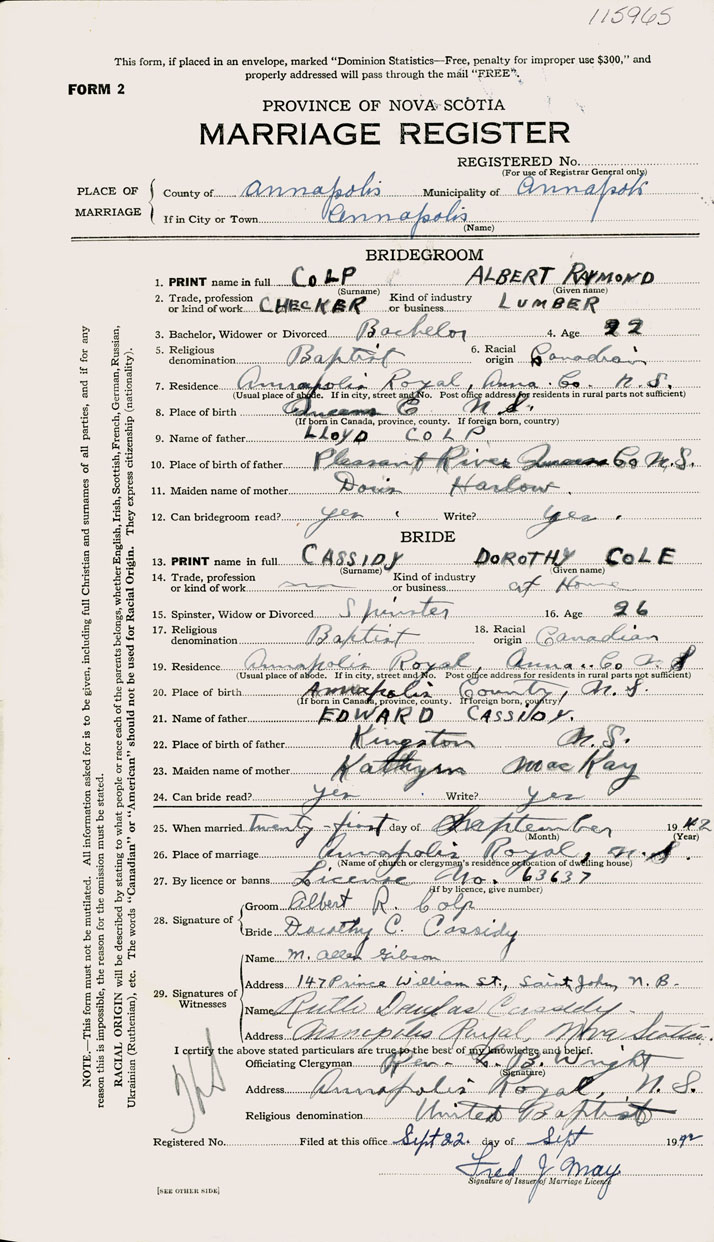 115965
This form, if placed in an envelope, marked "Dominion Statistics—Free, penalty for improper use $300," and
properly addressed will pass through the mail "FREE".
FORM 2
PROVINCE OF NOVA SCOTIA
MARRIAGE REGISTER
REGISTERED No.
(For use of Registrar General only)
PLACE OF MARRIAGE
County of Annapolis Municipality of Annapolis
If in City or Town Annapolis
(Name)
BRIDEGROOM
1. PRINT name in full COLP ALBERT RAYMOND
(Surname) (Given name)
2. Trade, profession or kind of work CHECKER Kind of industry or business LUMBER
3. Bachelor, Widower or Divorced Bachelor 4. Age 22
5. Religious denomination Baptist 6. Racial origin Canadian
7. Residence Annapolis Royal, Anna. Co. N.S.
(Usual place of abode. If in city, street and No. Post office address for residents in rural parts not sufficient)
8. Place of birth Queens C N.S.
(If born in Canada, province, county. If foreign born, country)
9. Name of father LLOYD COLP
10. Place of birth of father Pleasant River Queens Co N.S.
11. Maiden name of mother Doris Harlow.
12. Can bridegroom read? yes Write? yes.
BRIDE
13. PRINT name in full CASSIDY DOROTHY COLE
(Surname) (Given name)
14. Trade, profession or kind of work Kind of industry or business at Home
15. Spinster, Widow or Divorced Spinster 16. Age 26
17. Religious denomination Baptist 18. Racial origin Canadian
19. Residence Annapolis Royal, Anna. Co N.S
(Usual place of abode. If in city, street and No. Post office address for residents in rural parts not sufficient)
20. Place of birth Annapolis County, N.S.
(If born in Canada, province, county. If foreign born, country)
21. Name of father EDWARD CASSIDY.
22. Place of birth of father Kingston N.S.
23. Maiden name of mother Kathryn MacKay
24. Can bride read? Yes Write? Yes
25. When married twenty-first day of September 1942
(Month) (Year)
26. Place of marriage Annapolis Royal, N.S.
(Name of church or clergyman's residence or location of dwelling house)
27. By licence or banns License No. 63637
(If by licence, give number)
28. Signature of
Groom Albert R. Colp
Bride Dorothy C. Cassidy
29. Signatures of Witnesses
Name M. Allen Gibson
Address 147 Prince William St., Saint John, N.B.
Name Ruth Douglas Cassidy.
Address Annapolis Royal, Nova Scotia.
I certify the above stated particulars are true to the best of my knowledge and belief.
Officiating Clergyman Rev. B. Wright
(Signature)
Address Annapolis Royal, N.S.
Religious denomination United Baptist
Registered No. Filed at this office Sept 22. day of Sept 1942
Fred J May
Signature of Issuer of Marriage Licence
[SEE OTHER SIDE]
NOTE.—This form must not be mutilated. All information asked for is to be given, including full Christian and surnames of all parties, and if for any
reason this is impossible, the reason for the omission must be stated.
RACIAL ORIGIN will be described by stating to what people or race each of the parents belongs, whether English, Irish, Scottish, French, German, Russian,
Ukrainian (Ruthenian), etc. The words "Canadian" or "American" should not be used for Racial Origin. They express citizenship (nationality).